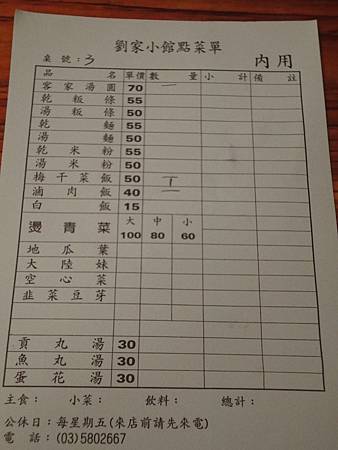 劉家小館點菜單
桌號：3 內用
品名 單價 數量 小計 備註
客家湯圓 70 一
乾粄條 55
湯粄條 50
乾麵 55
湯麵 50
乾米粉 55
湯米粉 50
梅干菜飯 50
滷肉飯 40 一
白飯 15
燙青菜 大 中 小
100 80 60
地瓜葉
大陸妹
空心菜
韭菜豆芽
貢丸湯 30
魚丸湯 30
蛋花湯 30
主食： 小菜： 飲料： 總計：
公休日：每星期五(來店前請先來電)
電話：(03)5802667